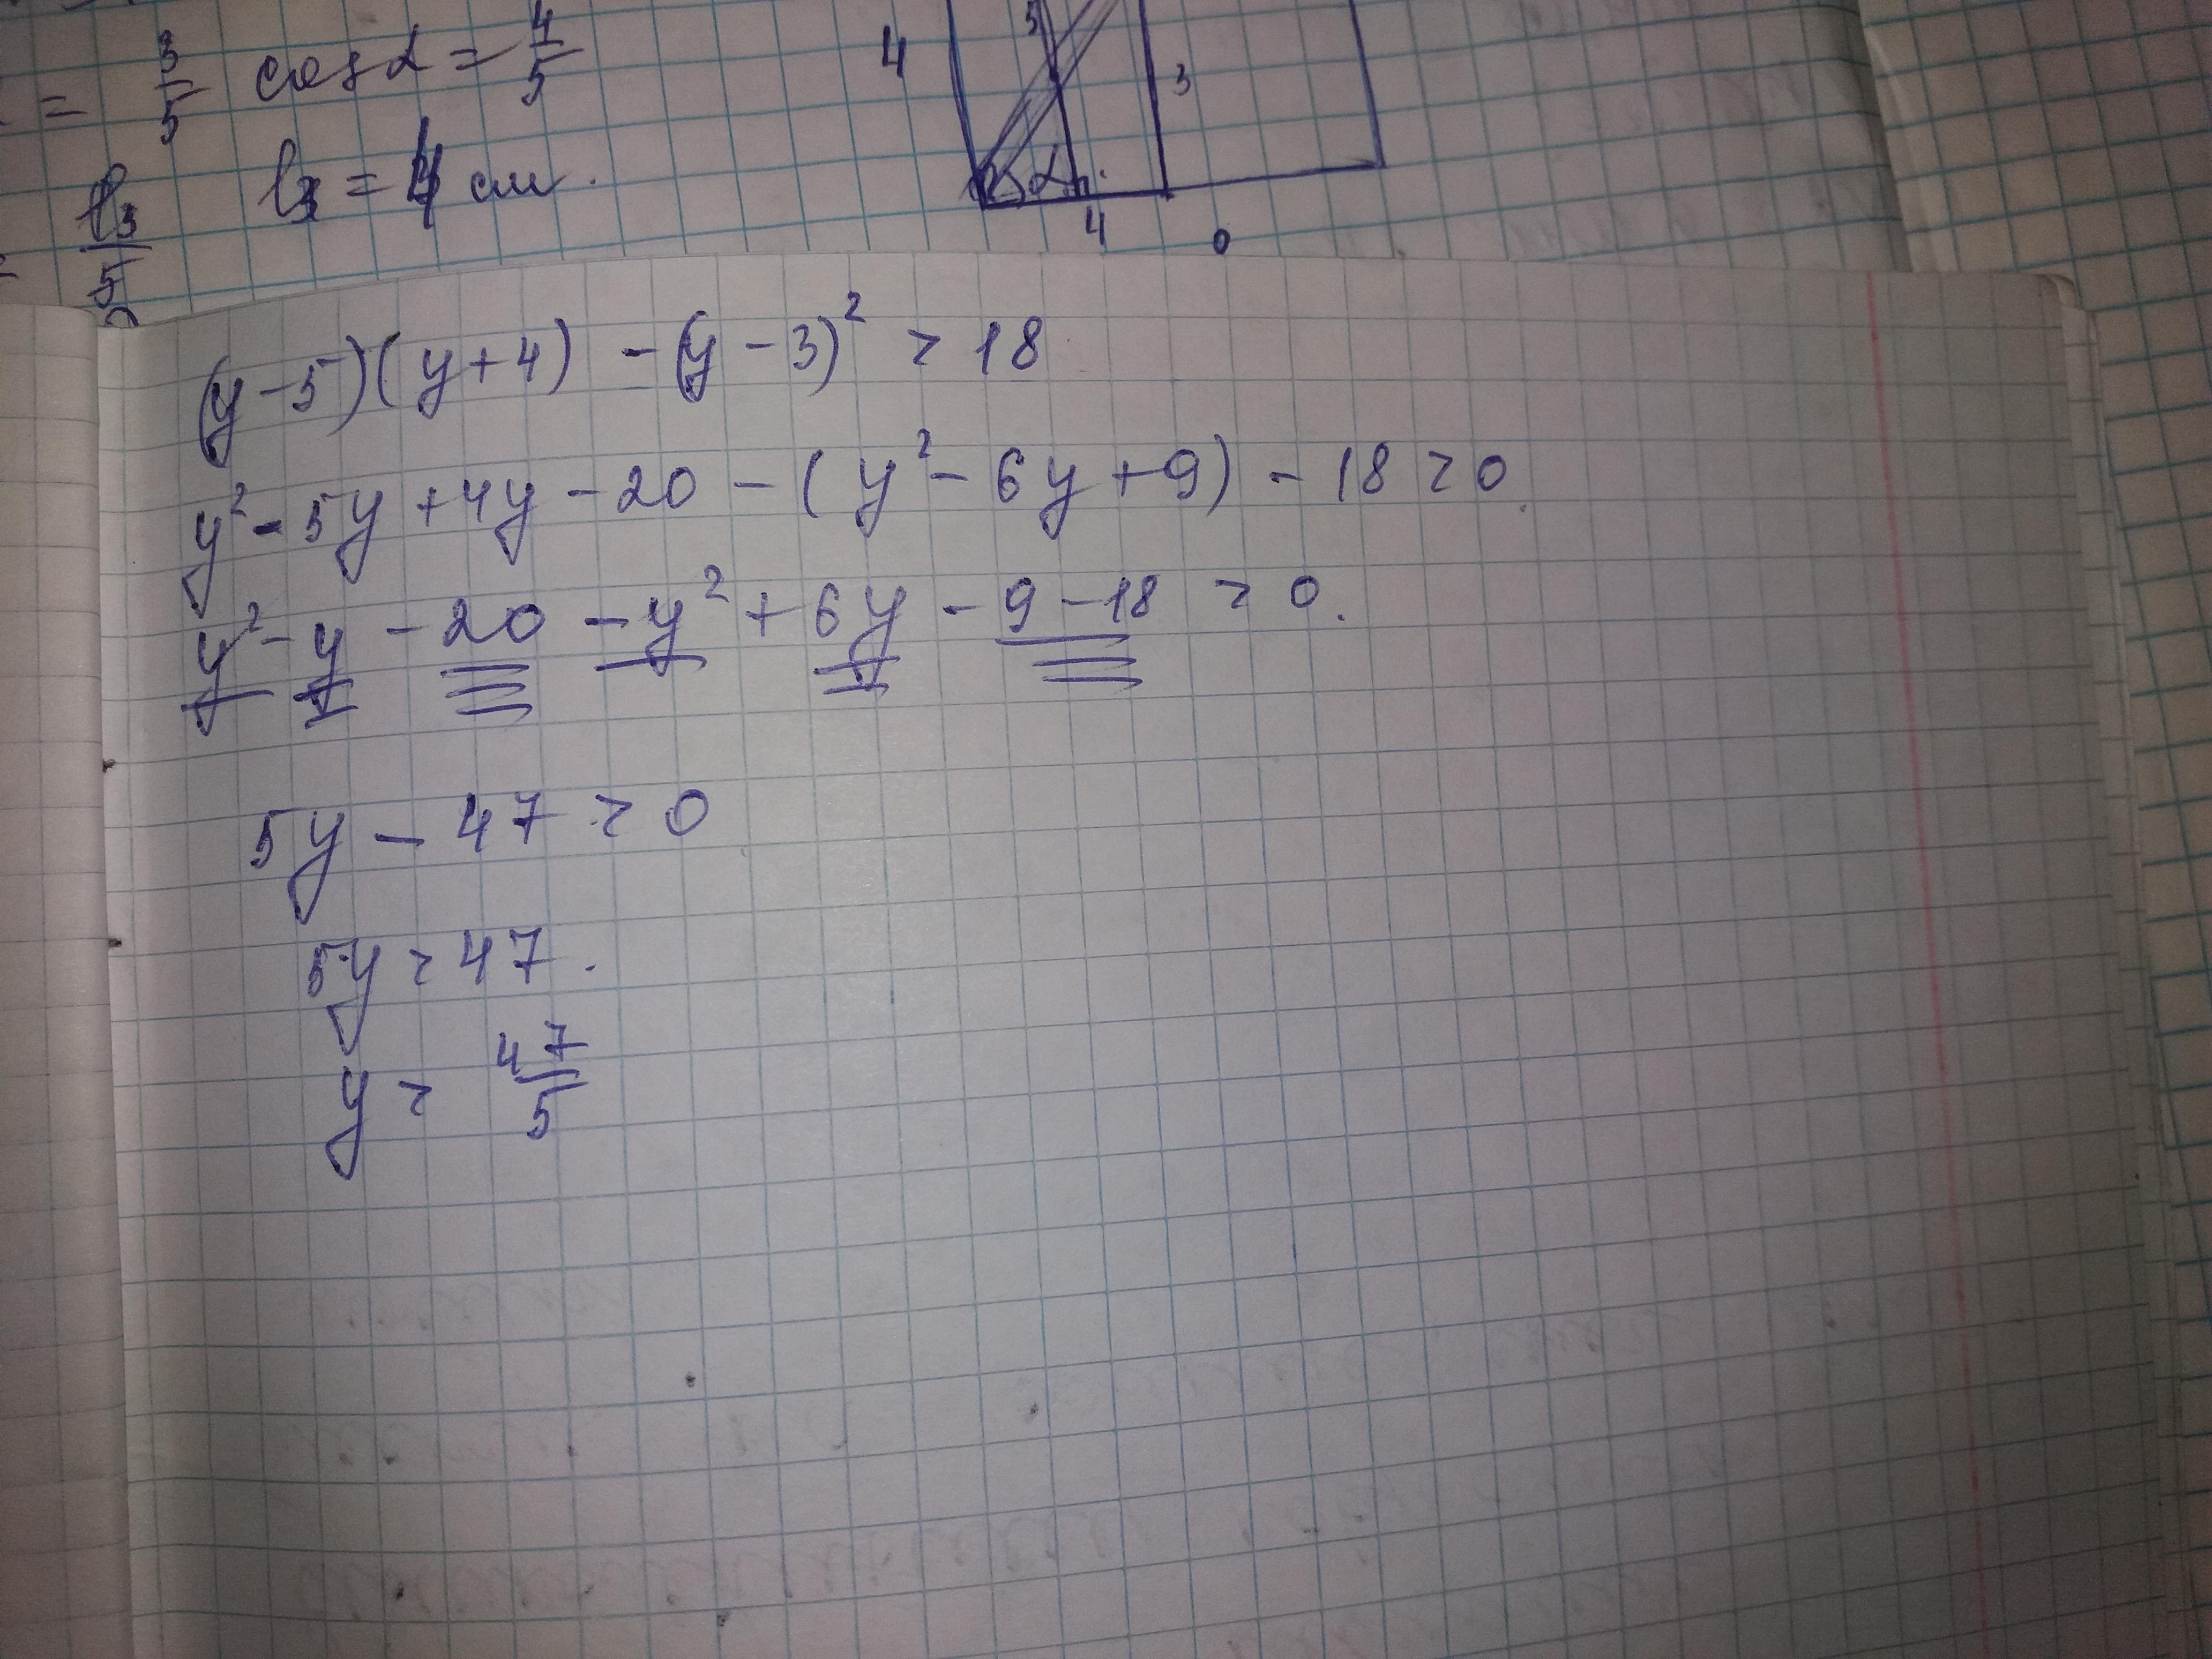 = 3/5 cos α = 4/5
l₃/5 l₃ = 4 см.
4 5 3
α
4
0
(y-5)(y+4) -(y-3)² > 18
y²-5y+4y-20-(y²-6y+9)-18>0.
y²-y-20-y²+6y-9-18>0.
5y-47>0
5y>47.
y> 47/5